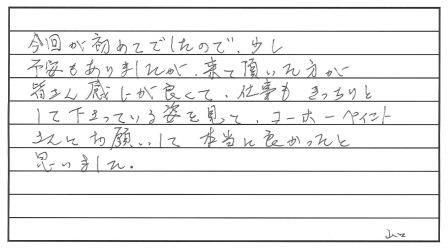 今回が初めてでしたので、少し
不安もありましたが、来て頂いた方が
皆さん感じが良くて、仕事もきっちりと
して下さっている姿を見て、コーホーペイント
さんにお願いして本当に良かったと
思いました。